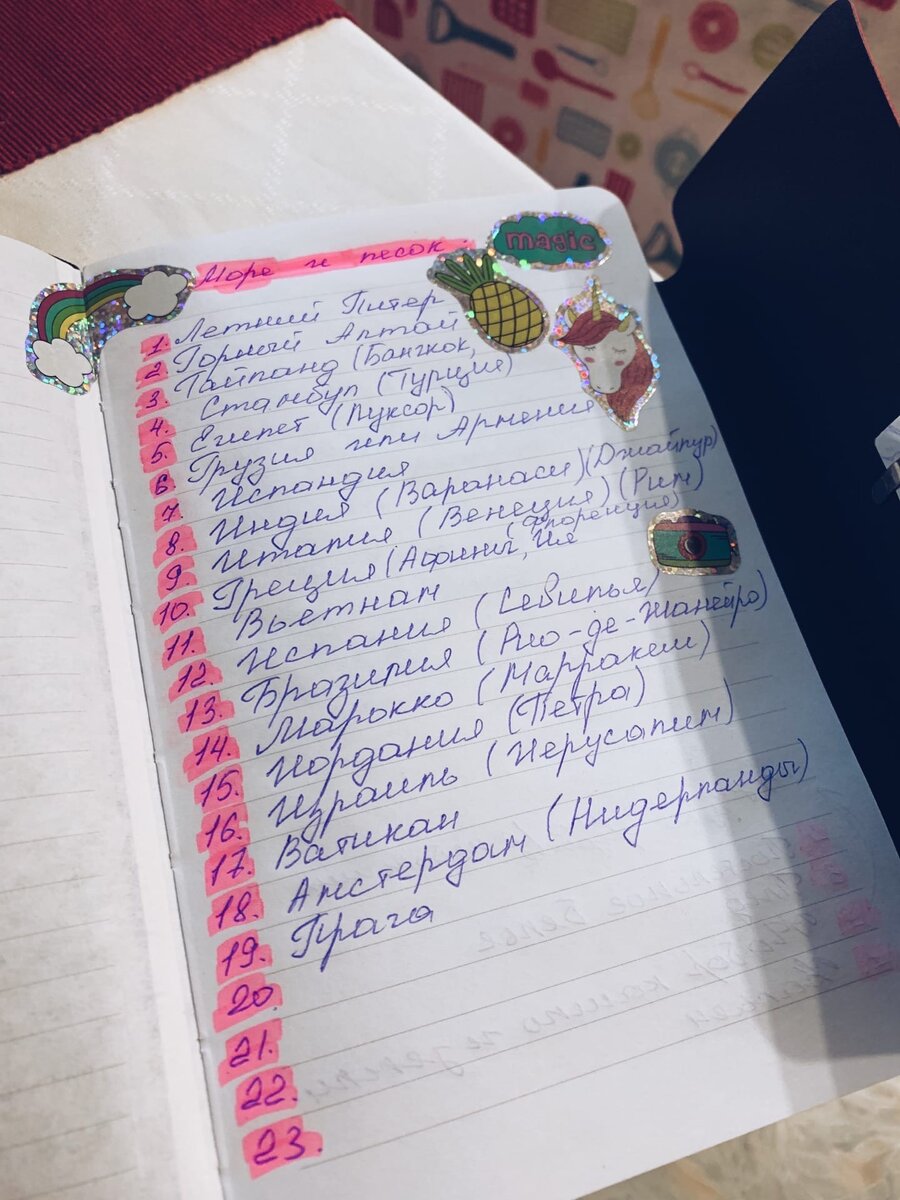 Море и песок.
magic
1. Летний Питер
2. Горный Алтай
3. Тайланд (Бангкок,
4. Стамбул (Турция)
5. Египет (Луксор)
6. Грузия или Армения
7. Исландия
8. Индия (Варанаси) (Джайпур)
9. Италия (Венеция) (Рим)
(Флоренция)
10. Греция (Афины, Ия
11. Вьетнам
12. Испания (Севилья)
13. Бразилия (Рио-де-Жанейро)
14. Марокко (Марракеш)
15. Иордания (Петра)
16. Израиль (Иерусалим)
17. Ватикан
18. Амстердам (Нидерланды)
19. Прага
20.
21.
22.
23.